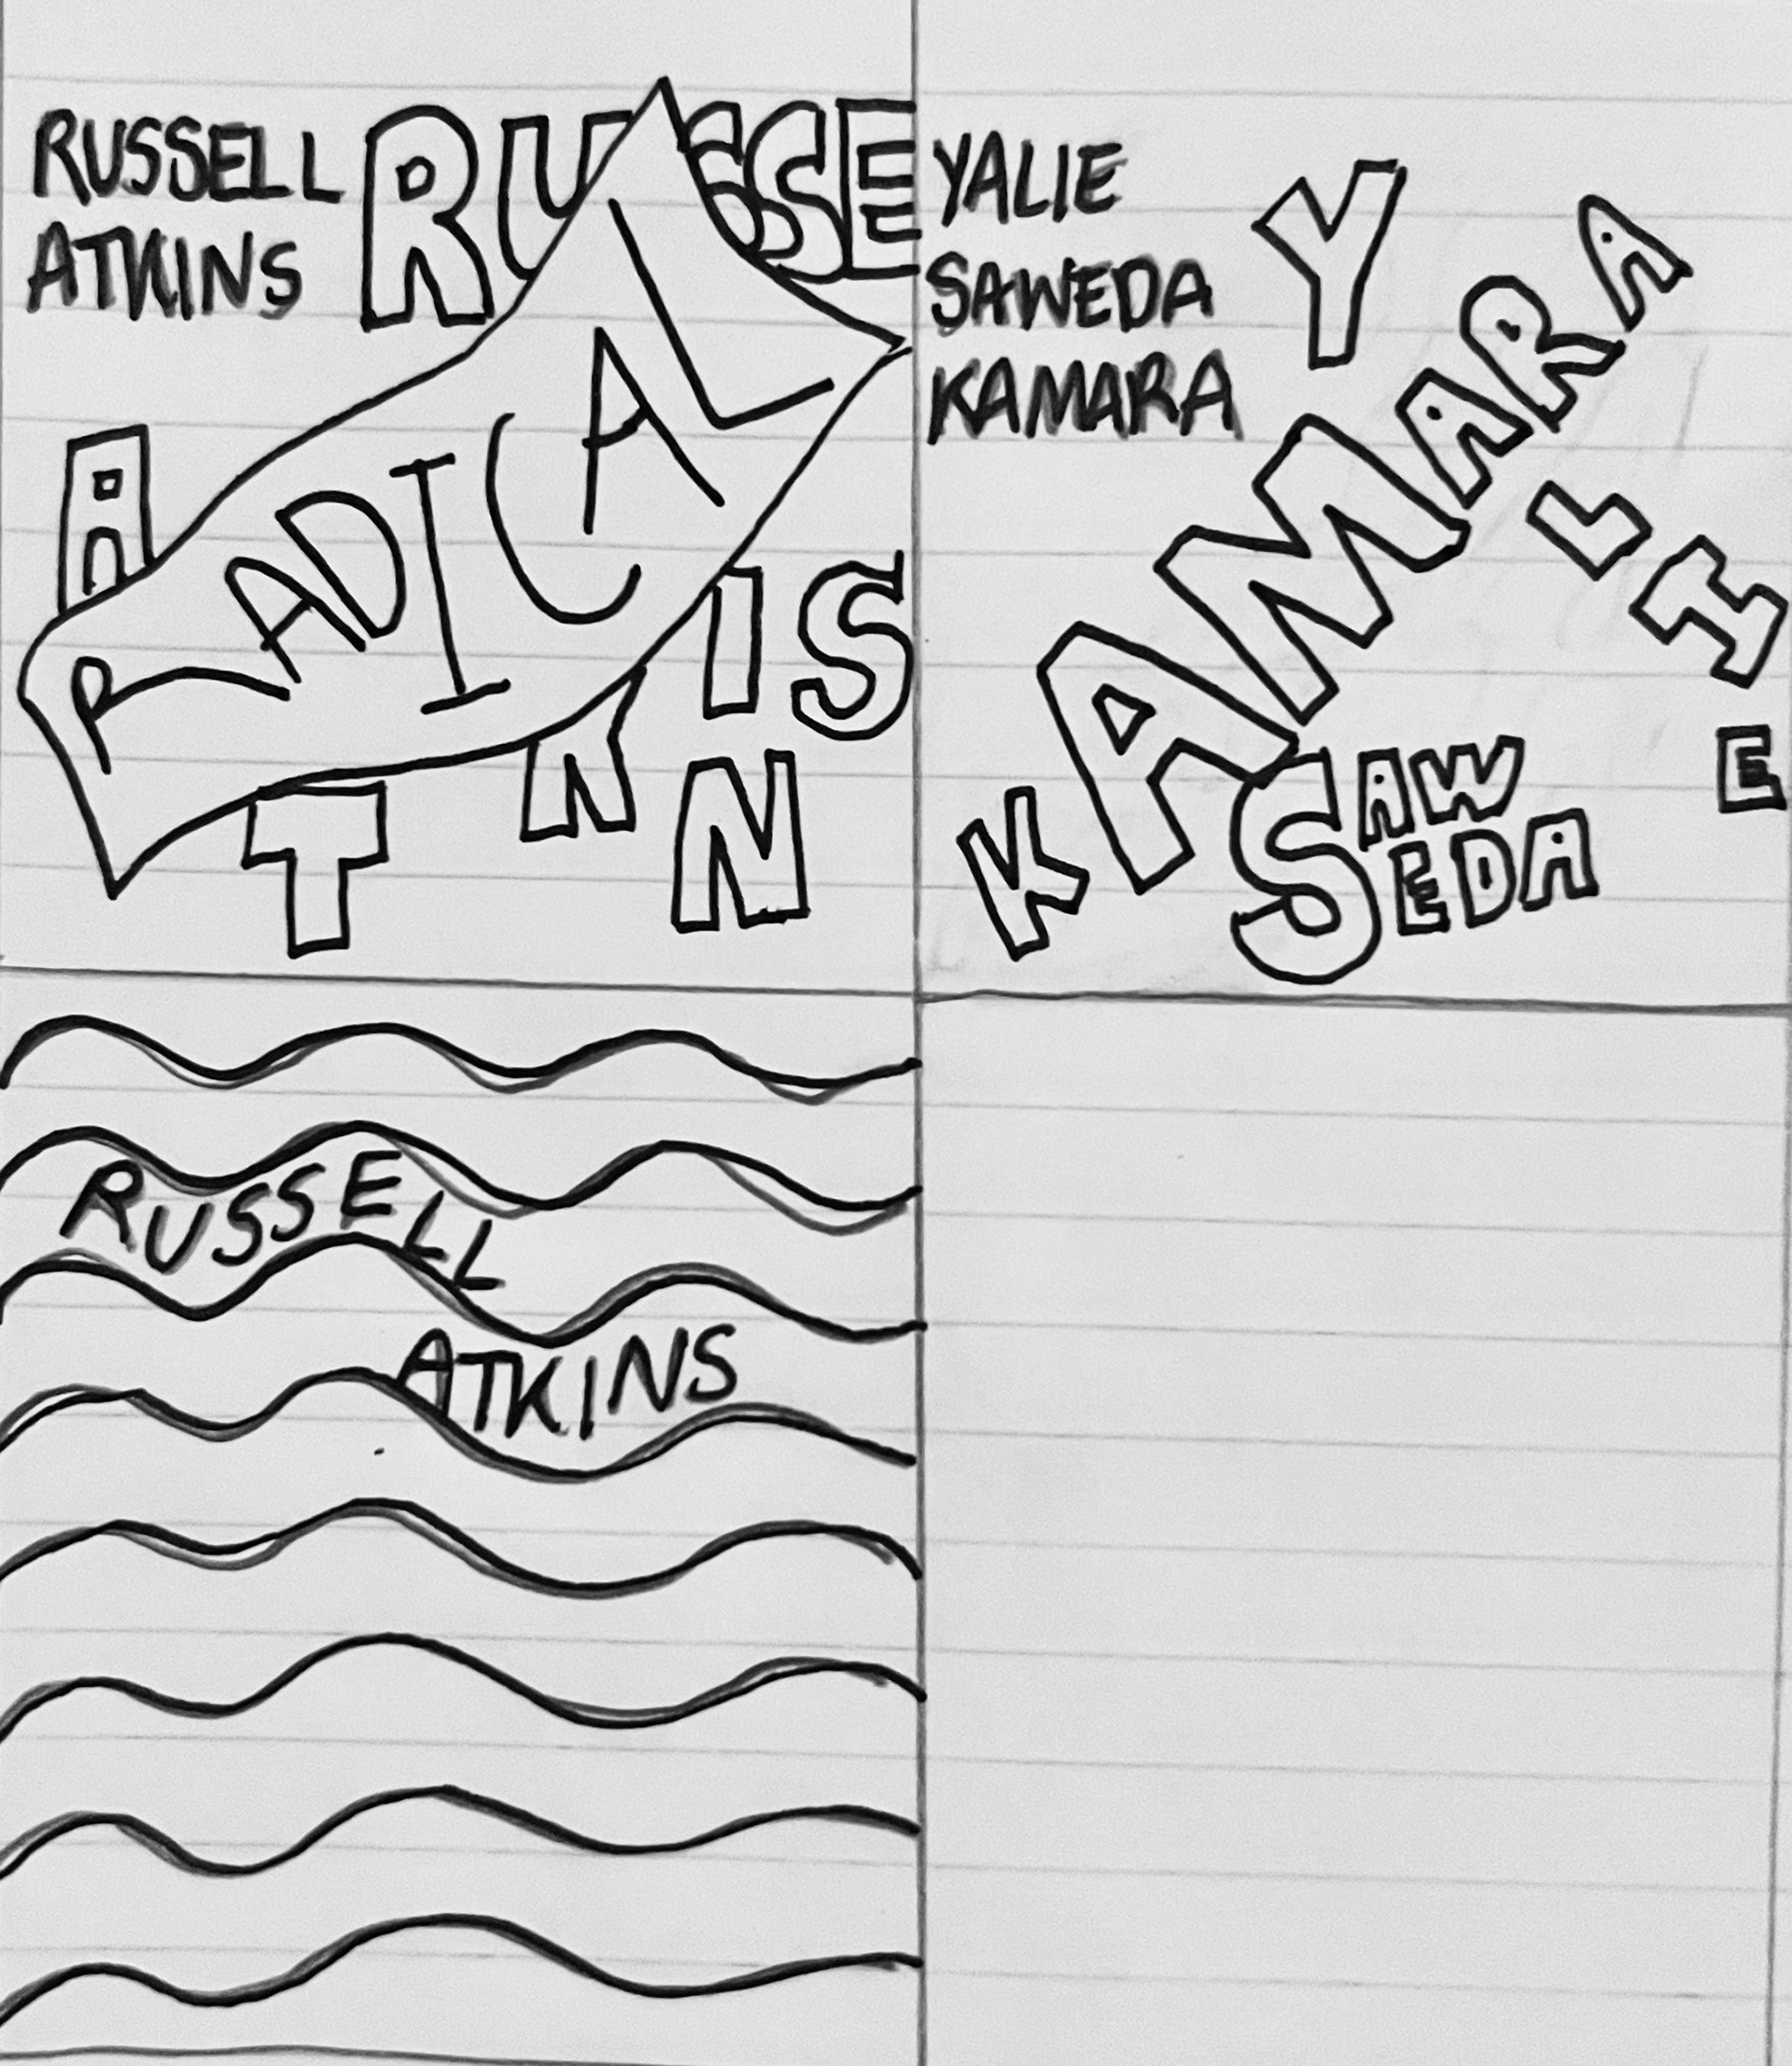 RUSSELL
ATKINS
RUSSE
RADICAL
A
IS
T K N
YALIE
SAWEDA
KAMARA
Y
KAMARA
LIE
SAW
EDA
RUSSELL
ATKINS